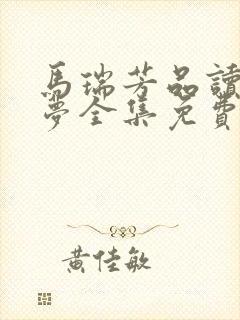 馬瑞芳品讀
夢全集免費
黃佳敏